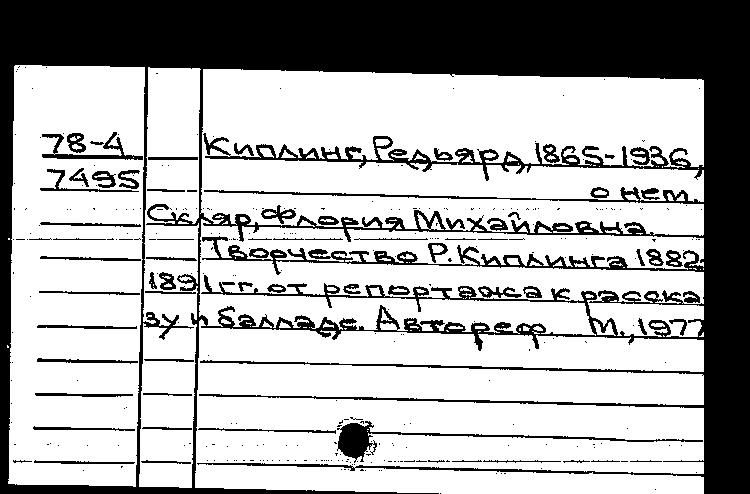 78-4 Киплинг, Редьярд, 1865-1936,
7495 о нем.
Скляр, Флория Михайловна.
Творчество Р. Киплинга 1882-
1891 гг. от репортажа к расска-
зу и балладе. Автореф. М., 1977